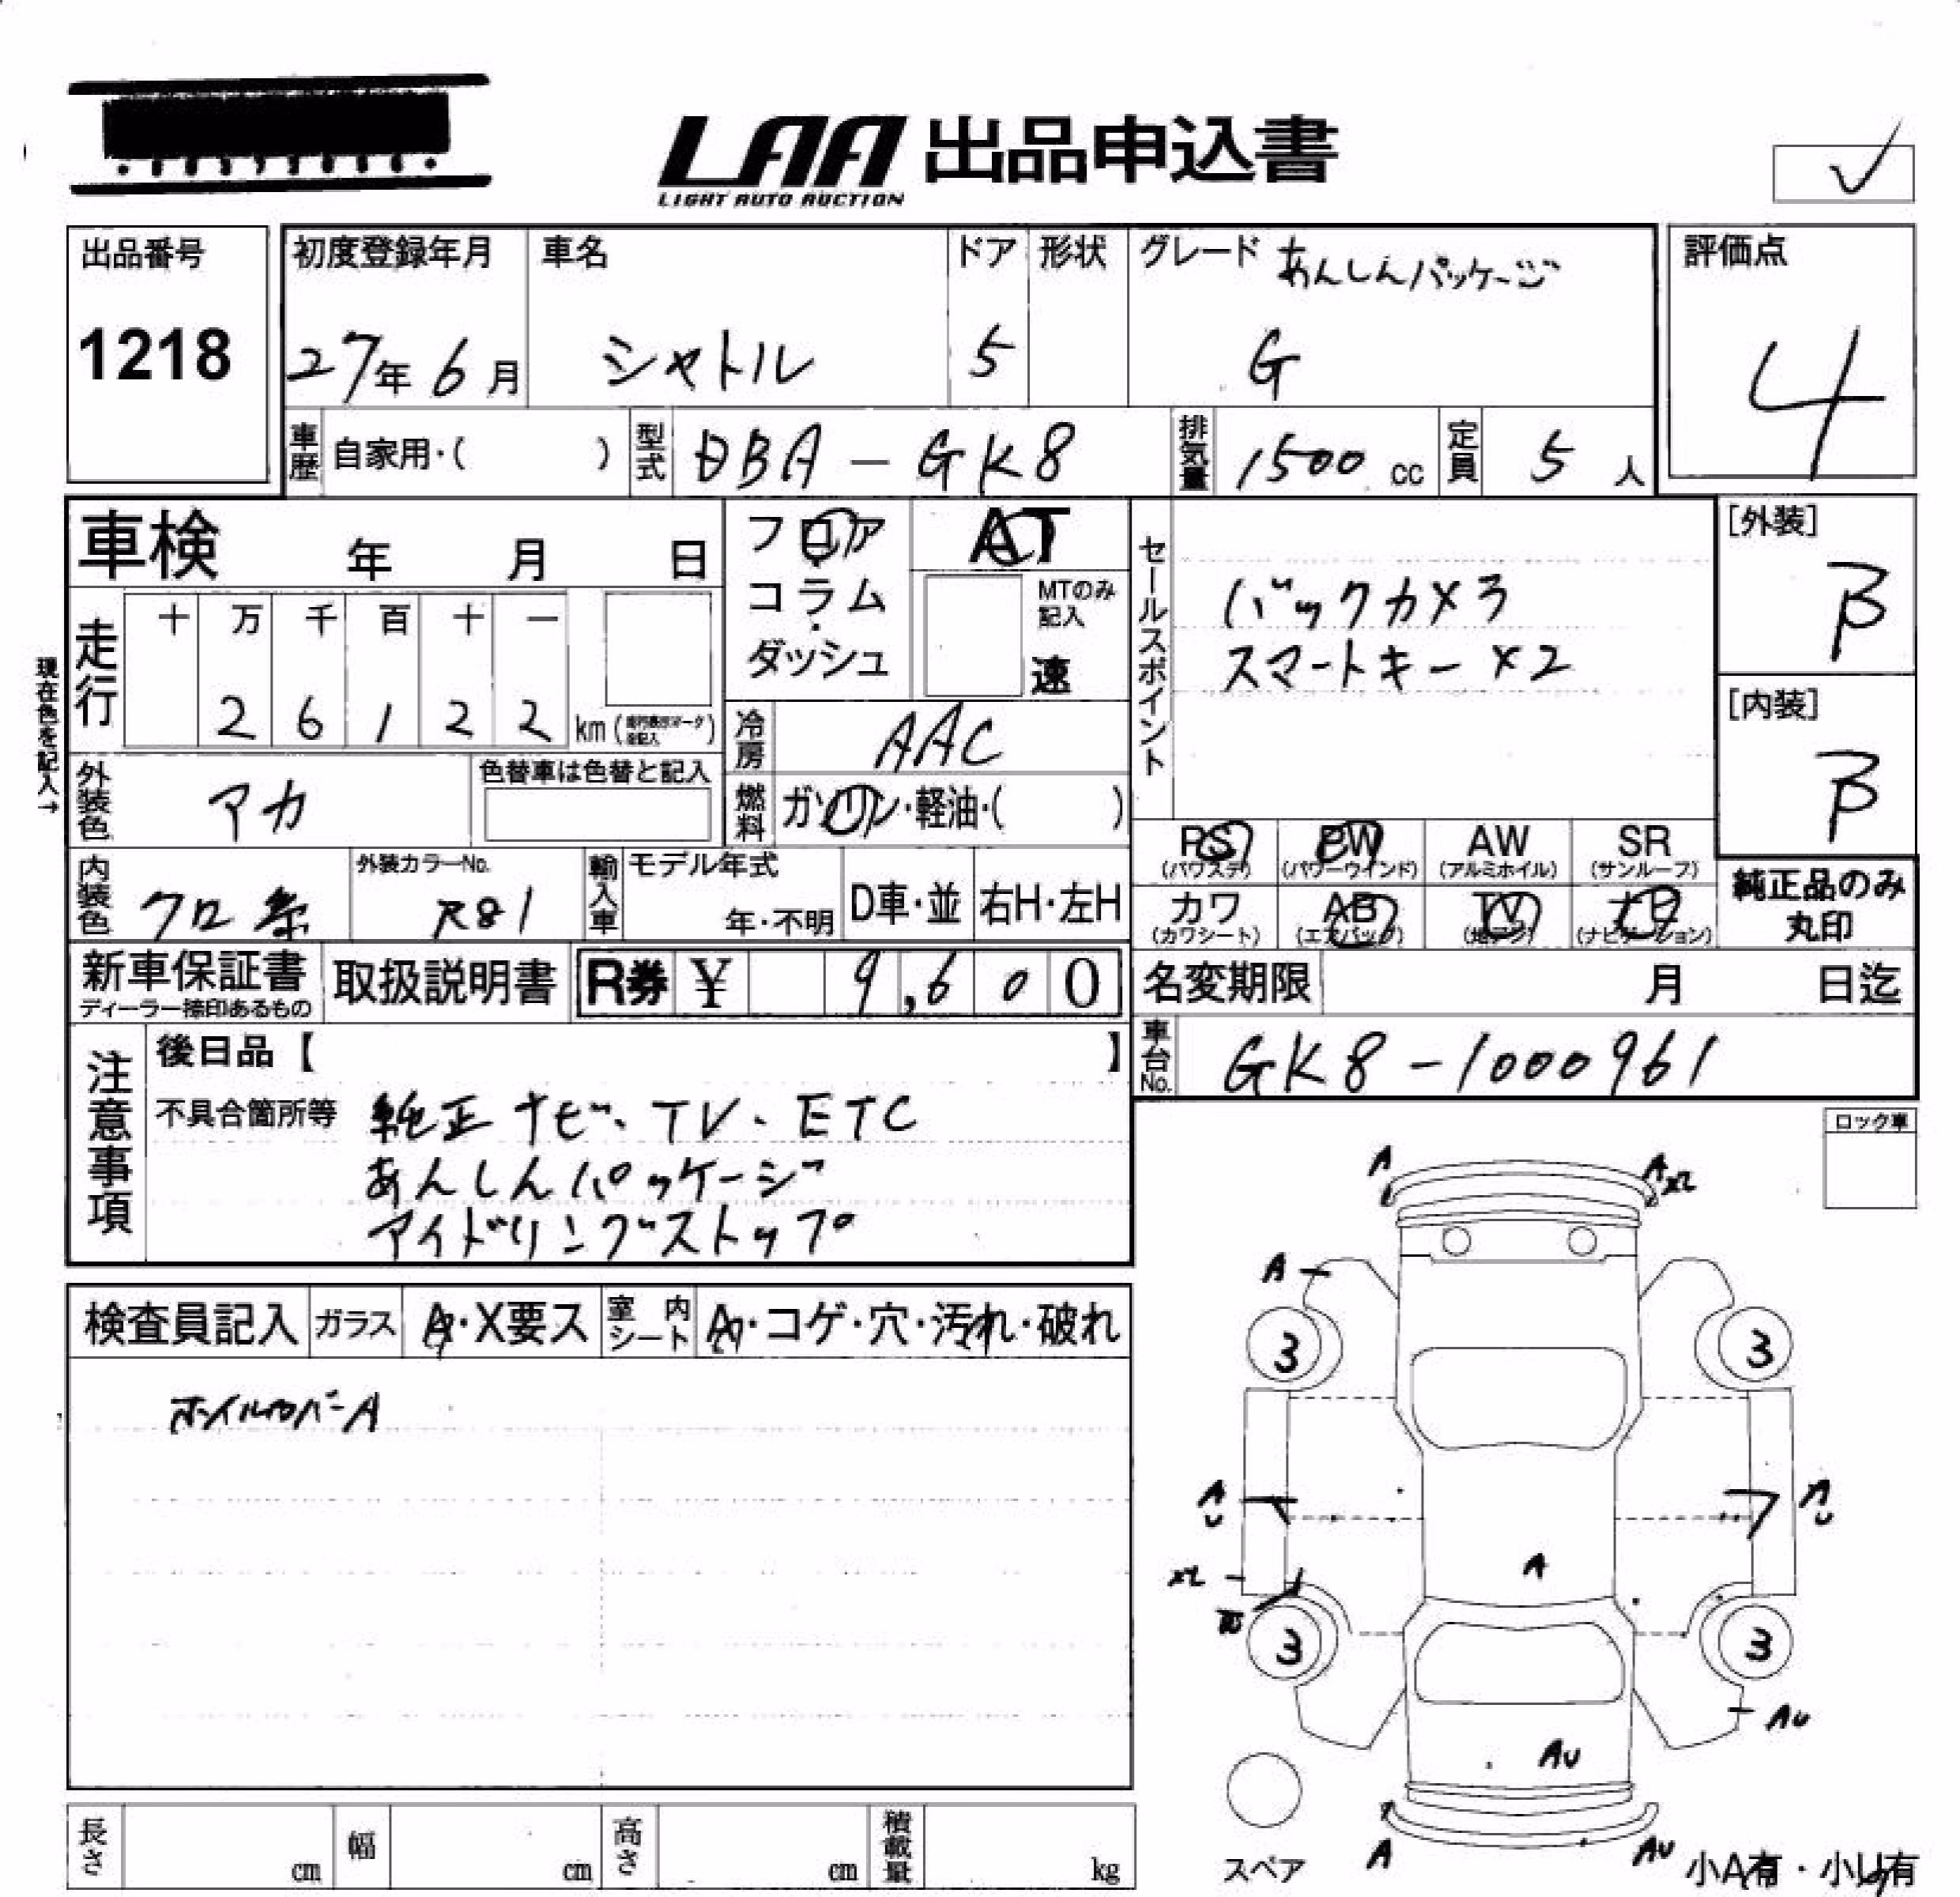 LAA 出品申込書
LIGHT AUTO AUCTION
出品番号
1218
初度登録年月
27年 6月
車名
シャトル
ドア
5
形状
グレード あんしんパッケージ
G
評価点
4
車歴 自家用・( )
型式 DBA-GK8
排気量 1500 cc
定員 5 人
車検 年 月 日
フロア
コラム
ダッシュ
AT
MTのみ記入
速
セールスポイント
バックカメラ
スマートキー×2
[外装]
β
[内装]
β
現在色を記入→
走行
十 万 千 百 十 一
2 6 1 2 2 km
冷房 AAC
外装色 アカ
色替車は色替と記入
燃料 ガソリン・軽油・( )
PS (パワステ)
PW (パワーウインド)
AW (アルミホイル)
SR (サンルーフ)
カワ (カワシート)
AB (エアバック)
TV (地デジ)
ナビ (ナビゲーション)
純正品のみ
丸印
内装色 クロ系
外装カラーNo.
R81
輸入車
モデル年式
年・不明
D車・並
右H・左H
新車保証書
ディーラー捺印あるもの
取扱説明書
R券 ¥ 9,600
名変期限 月 日迄
車台No. GK8-1000961
注意事項
後日品【 】
不具合箇所等 純正ナビ、TV、ETC
あんしんパッケージ
アイドリングストップ
ロック車
A
A
A
3
3
A
U
A
U
A
3
3
AU
AU
スペア
A
AU
小A有・小U有
検査員記入 ガラス A・X要ス
室内シート A・コゲ・穴・汚れ・破れ
ホイルカバーA
長さ cm
幅 cm
高さ cm
積載量 kg